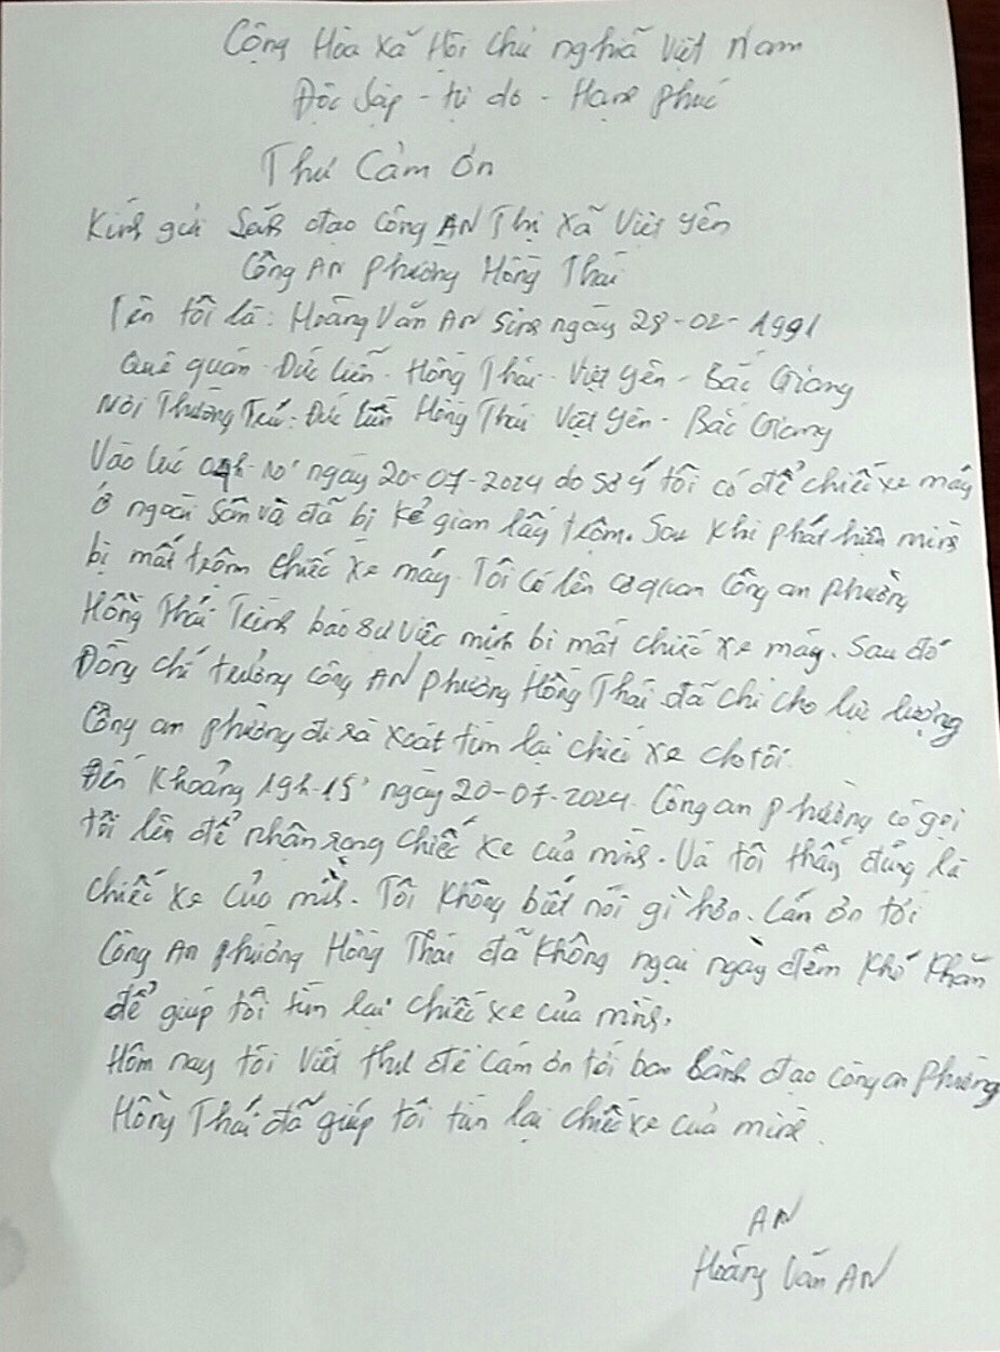 Cộng Hòa Xã Hội Chủ nghĩa Việt Nam
Độc Lập - tự do - Hạnh phúc
Thư Cảm ơn
Kính gửi Lãnh đạo Công AN Thị Xã Việt Yên
Công AN Phường Hồng Thái
Tên tôi là: Hoàng Văn AN Sinh ngày 28-02-1991
Quê quán - Đức Liễn - Hồng Thái - Việt Yên - Bắc Giang
Nơi Thường Trú: Đức Liễn Hồng Thái Việt Yên - Bắc Giang
Vào lúc 04h-10' ngày 20-07-2024 do sơ ý tôi có để chiếc xe máy
ở ngoài sân và đã bị kẻ gian lấy trộm. Sau khi phát hiện mình
bị mất trộm chiếc xe máy. Tôi có lên cơ quan Công an phường
Hồng Thái Trình báo sự việc mình bị mất chiếc xe máy. Sau đó
Đồng chí trưởng công AN phường Hồng Thái đã chỉ cho lực lượng
Công an phường đi rà xoát tìm lại chiếc xe cho tôi.
Đến Khoảng 19h-15' ngày 20-07-2024. Công an phường có gọi
tôi lên để nhận rạng chiếc xe của mình. Và tôi thấy đúng là
chiếc xe của mình. Tôi Không biết nói gì hơn. Cảm ơn tới
Công An phường Hồng Thái đã Không ngại ngày đêm khó khăn
để giúp tôi tìm lại chiếc xe của mình.
Hôm nay tôi Viết thư để cảm ơn tới ban Lãnh đạo công an phường
Hồng Thái đã giúp tôi tìm lại chiếc xe của mình.
AN
Hoàng Văn AN